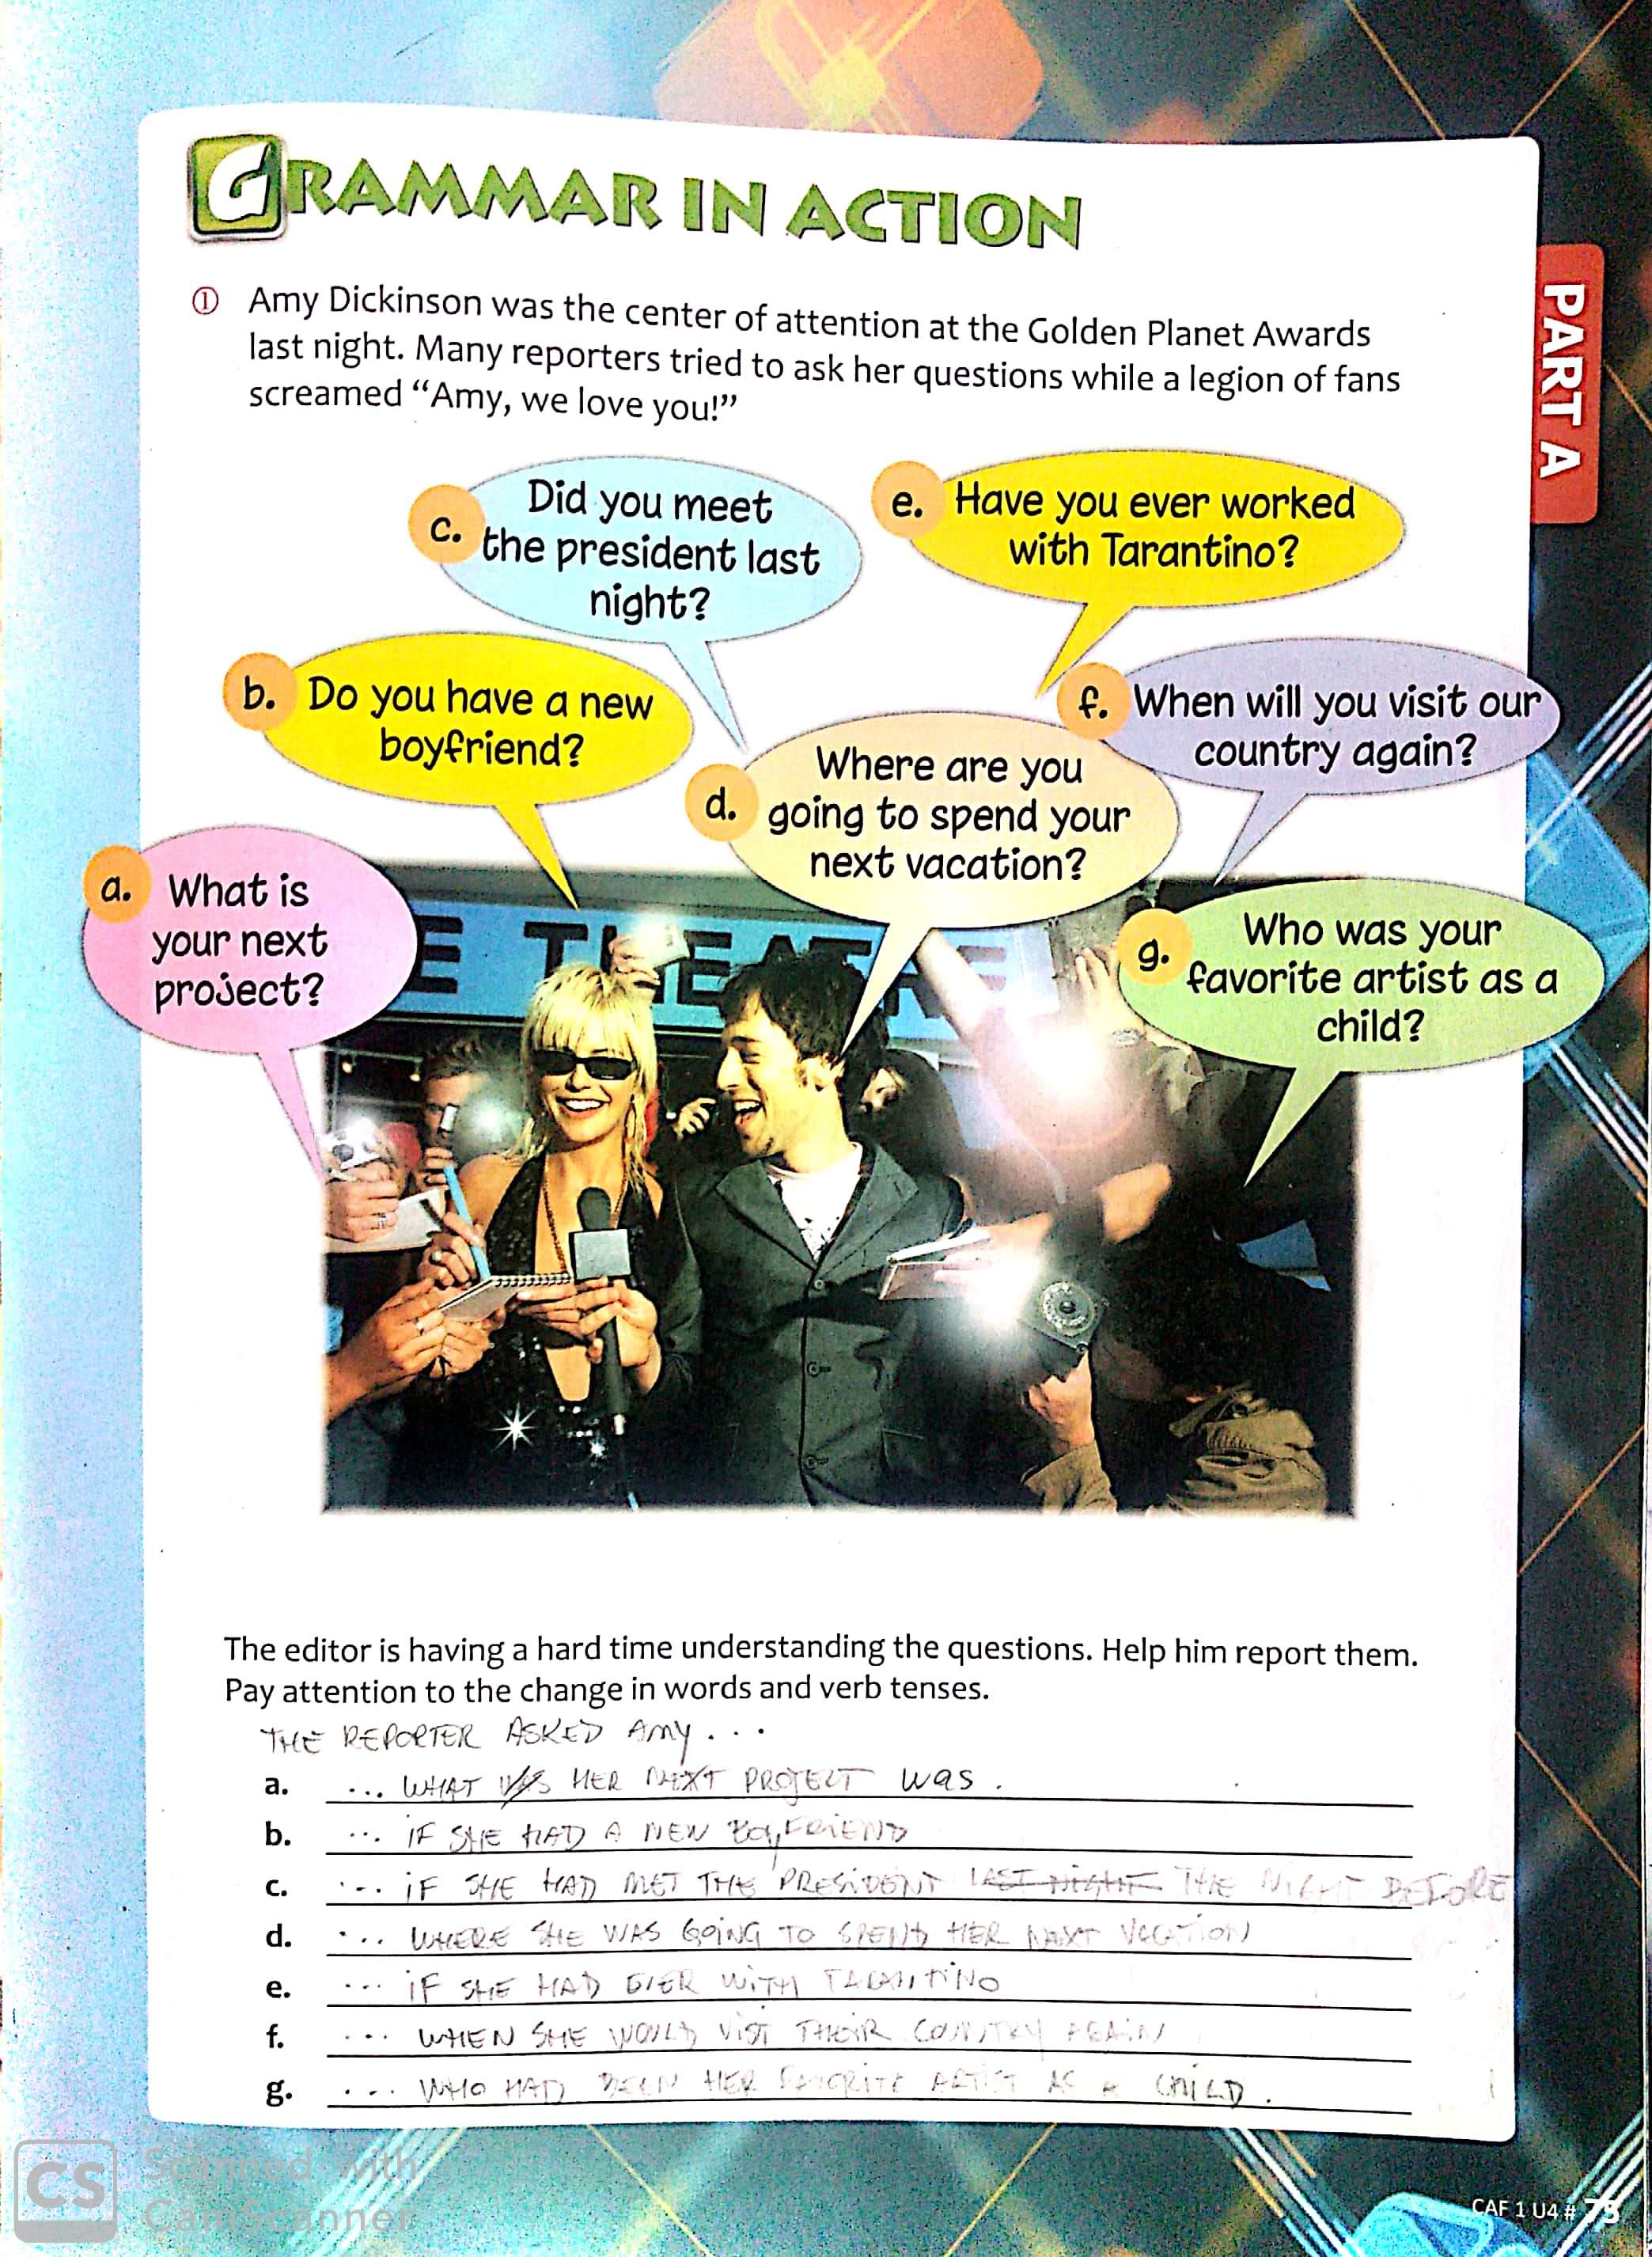 GRAMMAR IN ACTION
PART A
① Amy Dickinson was the center of attention at the Golden Planet Awards
last night. Many reporters tried to ask her questions while a legion of fans
screamed “Amy, we love you!”
c. Did you meet
the president last
night?
e. Have you ever worked
with Tarantino?
b. Do you have a new
boyfriend?
f. When will you visit our
country again?
d. Where are you
going to spend your
next vacation?
a. What is
your next
project?
g. Who was your
favorite artist as a
child?
E THEATRE
The editor is having a hard time understanding the questions. Help him report them.
Pay attention to the change in words and verb tenses.
THE REPORTER ASKED AMY...
a. ... WHAT WAS HER NEXT PROJECT was.
b. ... IF SHE HAD A NEW BOYFRIEND
c. ... IF SHE HAD MET THE PRESIDENT LAST NIGHT THE NIGHT BEFORE
d. ... WHERE SHE WAS GOING TO SPEND HER NEXT VACATION
e. ... IF SHE HAD EVER WITH TARANTINO
f. ... WHEN SHE WOULD VIST THEIR COUNTRY AGAIN
g. ... WHO HAD BEEN HER FAVORITE ARTIST AS A CHILD.
CS Scanned with
CamScanner
CAF 1 U4 # 75